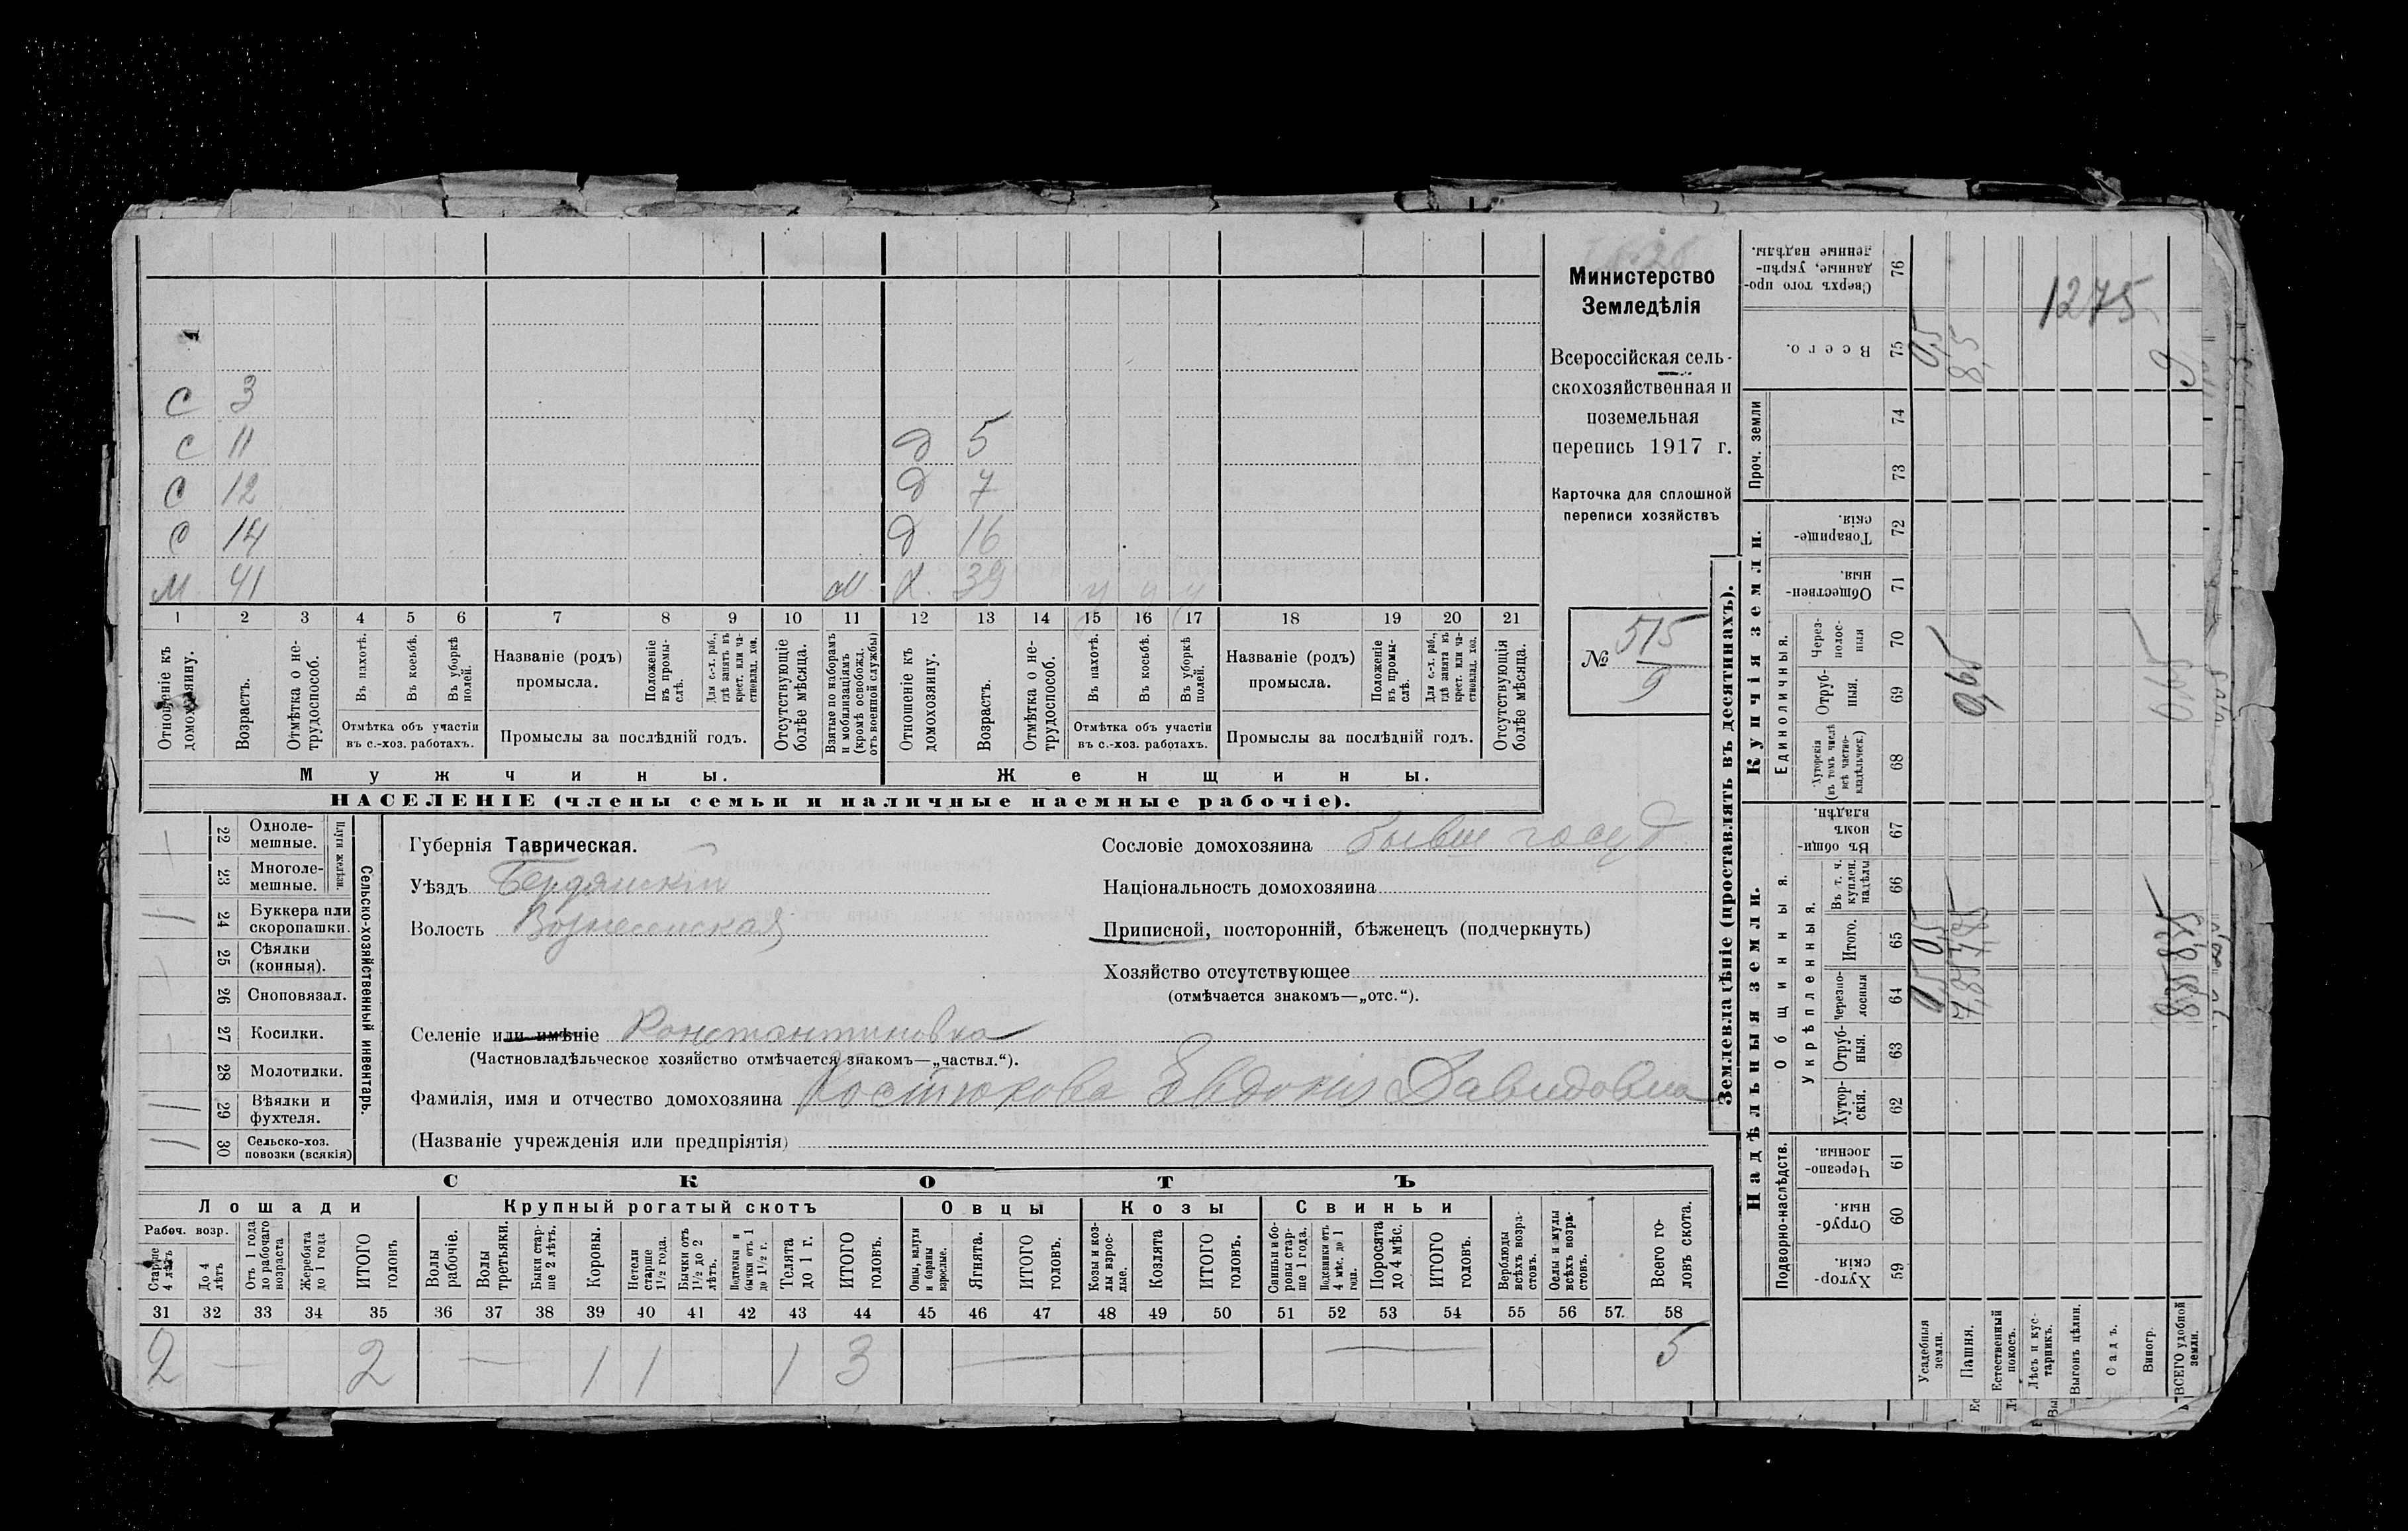 Министерство
Земледѣлія
Всероссійская сель-
скохозяйственная и
поземельная
перепись 1917 г.
Карточка для сплошной
переписи хозяйствъ
№ 515
9
С 3
С 11
Д 5
С 12
Д 7
С 14
Д 16
М 41 М Х. 39 ч ч ч
1 2 3 4 5 6 7 8 9 10 11 12 13 14 15 16 17 18 19 20 21
Отношеніе къ домохозяину.
Возрастъ.
Отмѣтка о не-трудоспособ.
Въ пахотѣ.
Въ косьбѣ.
Въ уборкѣ полей.
Отмѣтка объ участіи
въ с.-хоз. работахъ.
Названіе (родъ)
промысла.
Положеніе въ промы-слѣ.
Для с.-х. раб., гдѣ занятъ въ крест. или ча-стновлад. хоз.
Промыслы за послѣдній годъ.
Отсутствующіе болѣе мѣсяца.
Взятые по наборамъ и мобилизаціямъ (кромѣ освобожд. отъ военной службы)
Отношеніе къ домохозяину.
Возрастъ.
Отмѣтка о не-трудоспособ.
Въ пахотѣ.
Въ косьбѣ.
Въ уборкѣ полей.
Отмѣтка объ участіи
въ с.-хоз. работахъ.
Названіе (родъ)
промысла.
Положеніе въ промы-слѣ.
Для с.-х. раб., гдѣ занята въ крест. или ча-стновлад. хоз.
Промыслы за послѣдній годъ.
Отсутствующія болѣе мѣсяца.
Мужчины.
Женщины.
НАСЕЛЕНІЕ (члены семьи и наличные наемные рабочіе).
Сельско-хозяйственный инвентарь.
Плуги желѣзн.
22 Одноле-
мешные.
23 Многоле-
мешные.
24 Буккера или
скоропашки.
25 Сѣялки
(конныя).
26 Сноповязал.
27 Косилки.
28 Молотилки.
29 Вѣялки и
фухтеля.
30 Сельско-хоз.
повозки (всякія)
Губернія Таврическая.
Уѣздъ Бердянскій
Волость Вознесенская
Селеніе или имѣніе Константиновка
(Частновладѣльческое хозяйство отмѣчается знакомъ—„частвл.“).
Фамилія, имя и отчество домохозяина Костюкова Евдокія Давидовна
(Названіе учрежденія или предпріятія)
Сословіе домохозяина бывш госуд
Національность домохозяина
Приписной, посторонній, бѣженецъ (подчеркнуть)
Хозяйство отсутствующее
(отмѣчается знакомъ—„отс.“).
СКОТЪ
Лошади
Крупный рогатый скотъ
Овцы
Козы
Свиньи
Рабоч. возр.
Старше 4 лѣтъ
До 4 лѣтъ
Отъ 1 года до рабочаго возраста
Жеребята до 1 года
ИТОГО головъ
Волы рабочіе.
Волы третьяки.
Быки стар-ше 2 лѣтъ.
Коровы.
Нетели старше 1 1/2 года.
Бычки отъ 1 1/2 до 2 лѣтъ.
Подтелки и бычки отъ 1 до 1 1/2 г.
Телята до 1 г.
ИТОГО головъ.
Овцы, валухи и бараны взрослые.
Ягнята.
ИТОГО головъ.
Козы и коз-лы взрос-лые.
Козлята
ИТОГО головъ.
Свиньи и бо-ровы стар-ше 1 года.
Подсвинки отъ 4 мѣс. до 1 года.
Поросята до 4 мѣс.
ИТОГО головъ.
Верблюды всѣхъ возра-стовъ.
Ослы и мулы всѣхъ возра-стовъ.
Всего го-ловъ скота.
31 32 33 34 35 36 37 38 39 40 41 42 43 44 45 46 47 48 49 50 51 52 53 54 55 56 57. 58
2 — 2 — 1 1 1 3 — — 5
Землевладѣніе (проставлять въ десятинахъ).
Надѣльныя земли.
Купчія земли.
Проч. земли
Подворно-наслѣдств.
Общинныя.
Укрѣпленныя.
Единоличныя.
59 Хутор-скія.
60 Отруб-ныя.
61 Черезпо-лосныя.
62 Хутор-скія.
63 Отруб-ныя.
64 Черезпо-лосныя
65 Итого.
66 Въ т. ч. куплен. надѣлы
67 Въ общи-номъ владѣн.
68 Хуторскія (въ томъ числѣ всѣ частно-владѣльческ.)
69 Отруб-ныя.
70 Через-полос-ныя
71 Обществен-ныя.
72 Товарище-скія.
73
74
75 Всего.
76 Сверхъ того про-данные, укрѣп-ленные надѣлы.
Усадебныя земли. 0,5 0,5 0,5
Пашня. 7,85 7,85 0,65 8,5
Естественный покосъ.
Лѣсъ и кус-тарникъ.
Выгонъ цѣлин.
Садъ.
Виногр.
ВСЕГО удобной земли. 8,35 8,35 0,65 9
1275